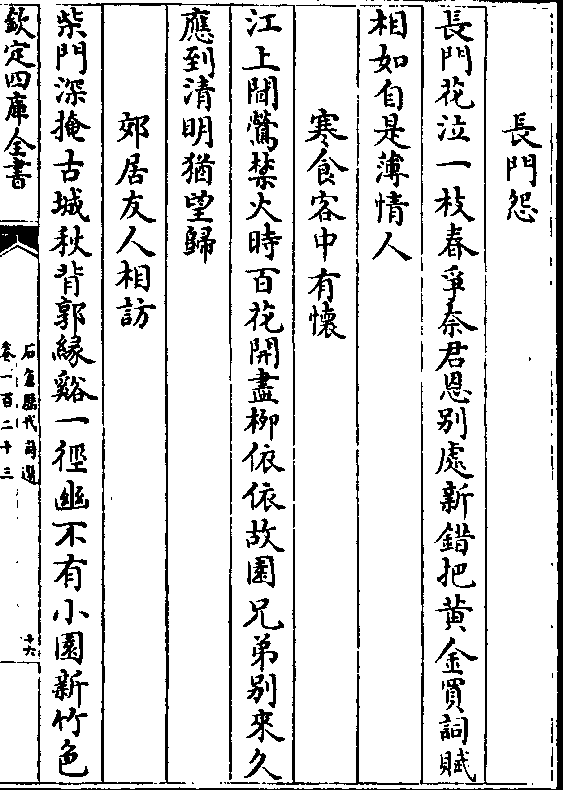 長門怨
長門花泣一枝春爭奈君恩別處新錯把黄金買詞賦
相如自是薄情人
寒食客中有懷
江上聞鶯禁火時百花開盡柳依依故園兄弟別來久
應到清明猶望歸
郊居友人相訪
柴門深掩古城秋背郭緣谿一徑幽不有小園新竹色
欽定四庫全書
石倉歷代詩選
卷一百二十三
十六